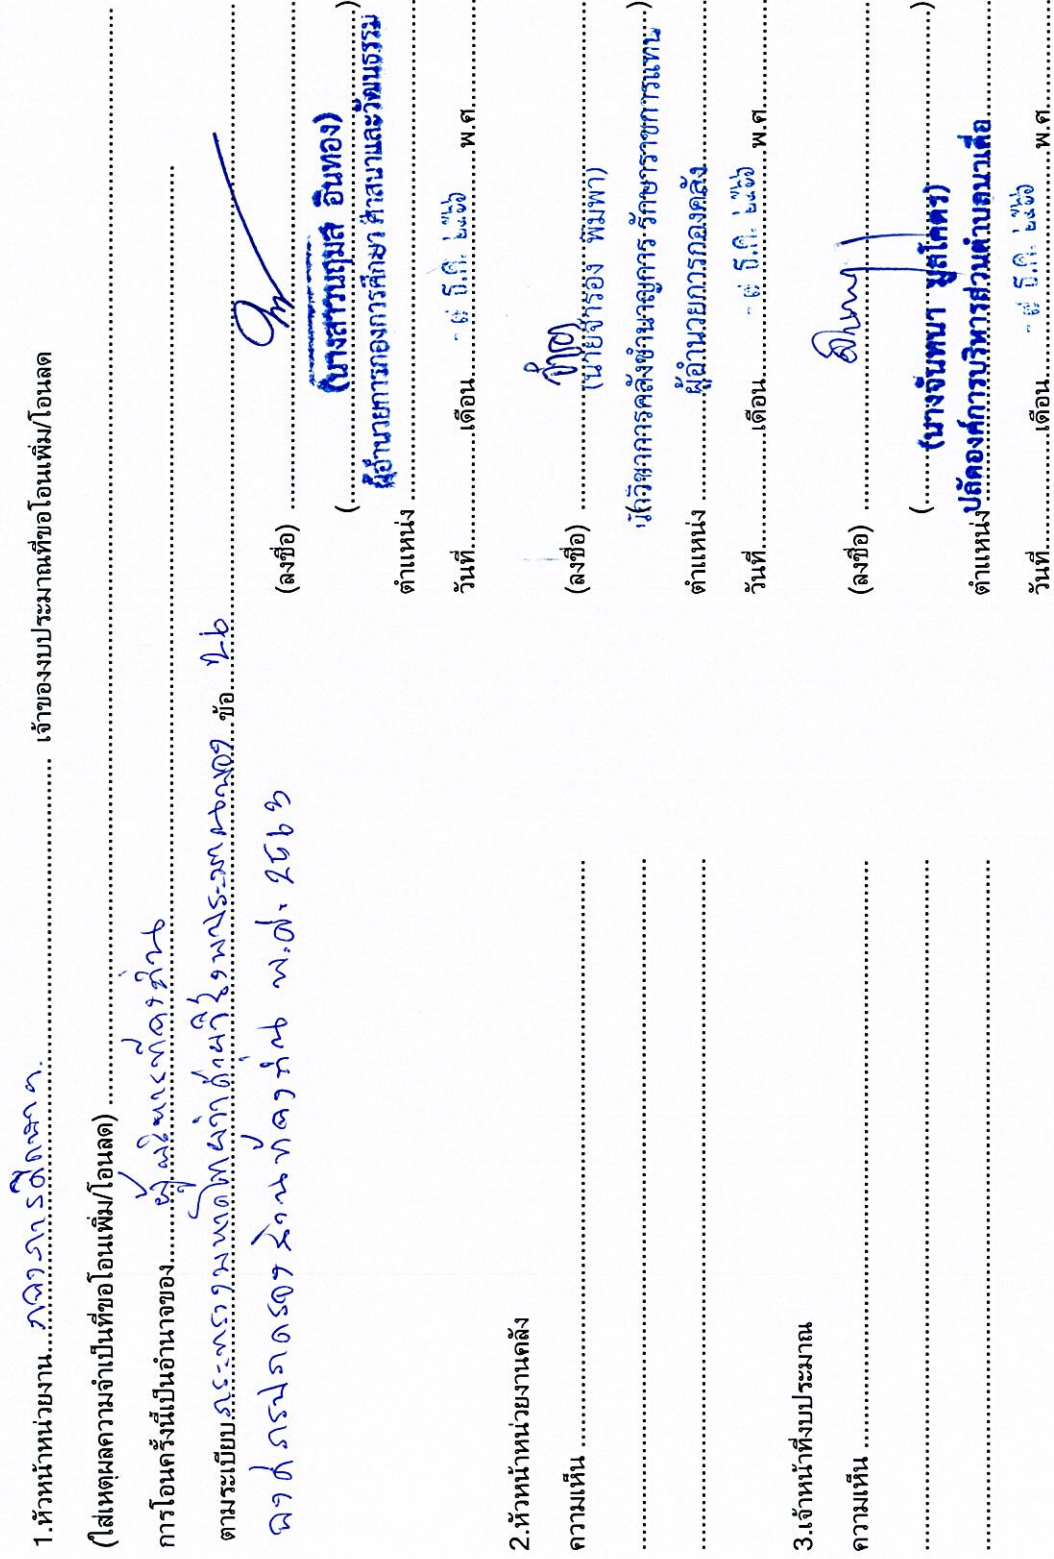 1.หัวหน้าหน่วยงาน....กองการศึกษาฯ............ เจ้าของงบประมาณที่ขอโอนเพิ่ม/โอนลด
(ใส่เหตุผลความจำเป็นที่ขอโอนเพิ่ม/โอนลด) ............
การโอนครั้งนี้เป็นอำนาจของ......ผู้บริหารท้องถิ่น............
ตามระเบียบ กระทรวงมหาดไทยว่าด้วยวิธีงบประมาณของ ข้อ 26
องค์กรปกครองส่วนท้องถิ่น พ.ศ. 2563
(ลงชื่อ) ............
(นางสาวนฤมล อินทอง)
ผู้อำนวยการกองการศึกษา ศาสนาและวัฒนธรรม
ตำแหน่ง ............
วันที่............เดือน - ๙ ธ.ค. ๒๕๖๖ พ.ศ............
2.หัวหน้าหน่วยงานคลัง
ความเห็น ............
(ลงชื่อ) ............
(นายจำรอง พิมพา)
นักวิชาการคลังชำนาญการ รักษาราชการแทน
ตำแหน่ง ผู้อำนวยการกองคลัง
วันที่............เดือน - ๙ ธ.ค. ๒๕๖๖ พ.ศ............
3.เจ้าหน้าที่งบประมาณ
ความเห็น ............
(ลงชื่อ) ............
(นางจันทนา มูลโคตร)
ตำแหน่ง ปลัดองค์การบริหารส่วนตำบลนาเดื่อ
วันที่............เดือน - ๙ ธ.ค. ๒๕๖๖ พ.ศ............